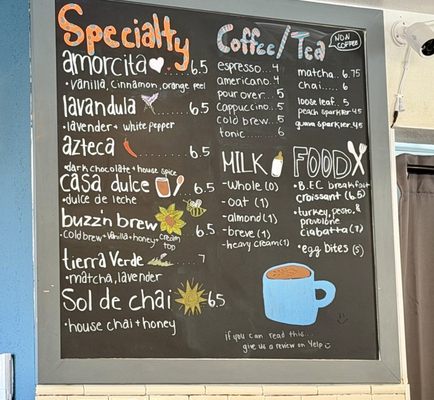 Specialty
amorcita 6.5
• vanilla, cinnamon, orange peel
lavandula 6.5
• lavender + white pepper
azteca 6.5
• dark chocolate + house spice
casa dulce 6.5
• dulce de leche
buzz'n brew 6.5
• cold brew + vanilla + honey + cream top
tierra verde 7
• matcha, lavender
Sol de chai 6.5
• house chai + honey
Coffee/Tea
espresso... 4
americano. 4
pour over... 5
cappuccino.. 5
cold brew... 5
tonic 6
NON COFFEE
matcha.. 6.75
chai.... 6
loose leaf. 5
peach sparkler 4.5
guava sparkler 4.5
MILK
- Whole (0)
- oat (1)
- almond (1)
- breve (1)
- heavy cream (1)
FOOD
• B.E.C breakfast
croissant (6.5)
• turkey, pesto, &
provolone
ciabatta (7)
• egg bites (5)
if you can read this...
give us a review on Yelp